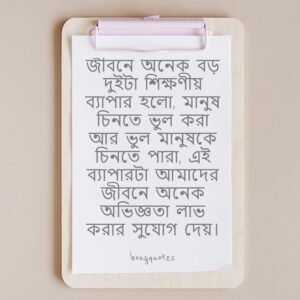 জীবনে অনেক বড়
দুইটা শিক্ষণীয়
ব্যাপার হলো, মানুষ
চিনতে ভুল করা
আর ভুল মানুষকে
চিনতে পারা, এই
ব্যাপারটা আমাদের
জীবনে অনেক
অভিজ্ঞতা লাভ
করার সুযোগ দেয়।
bongquotes